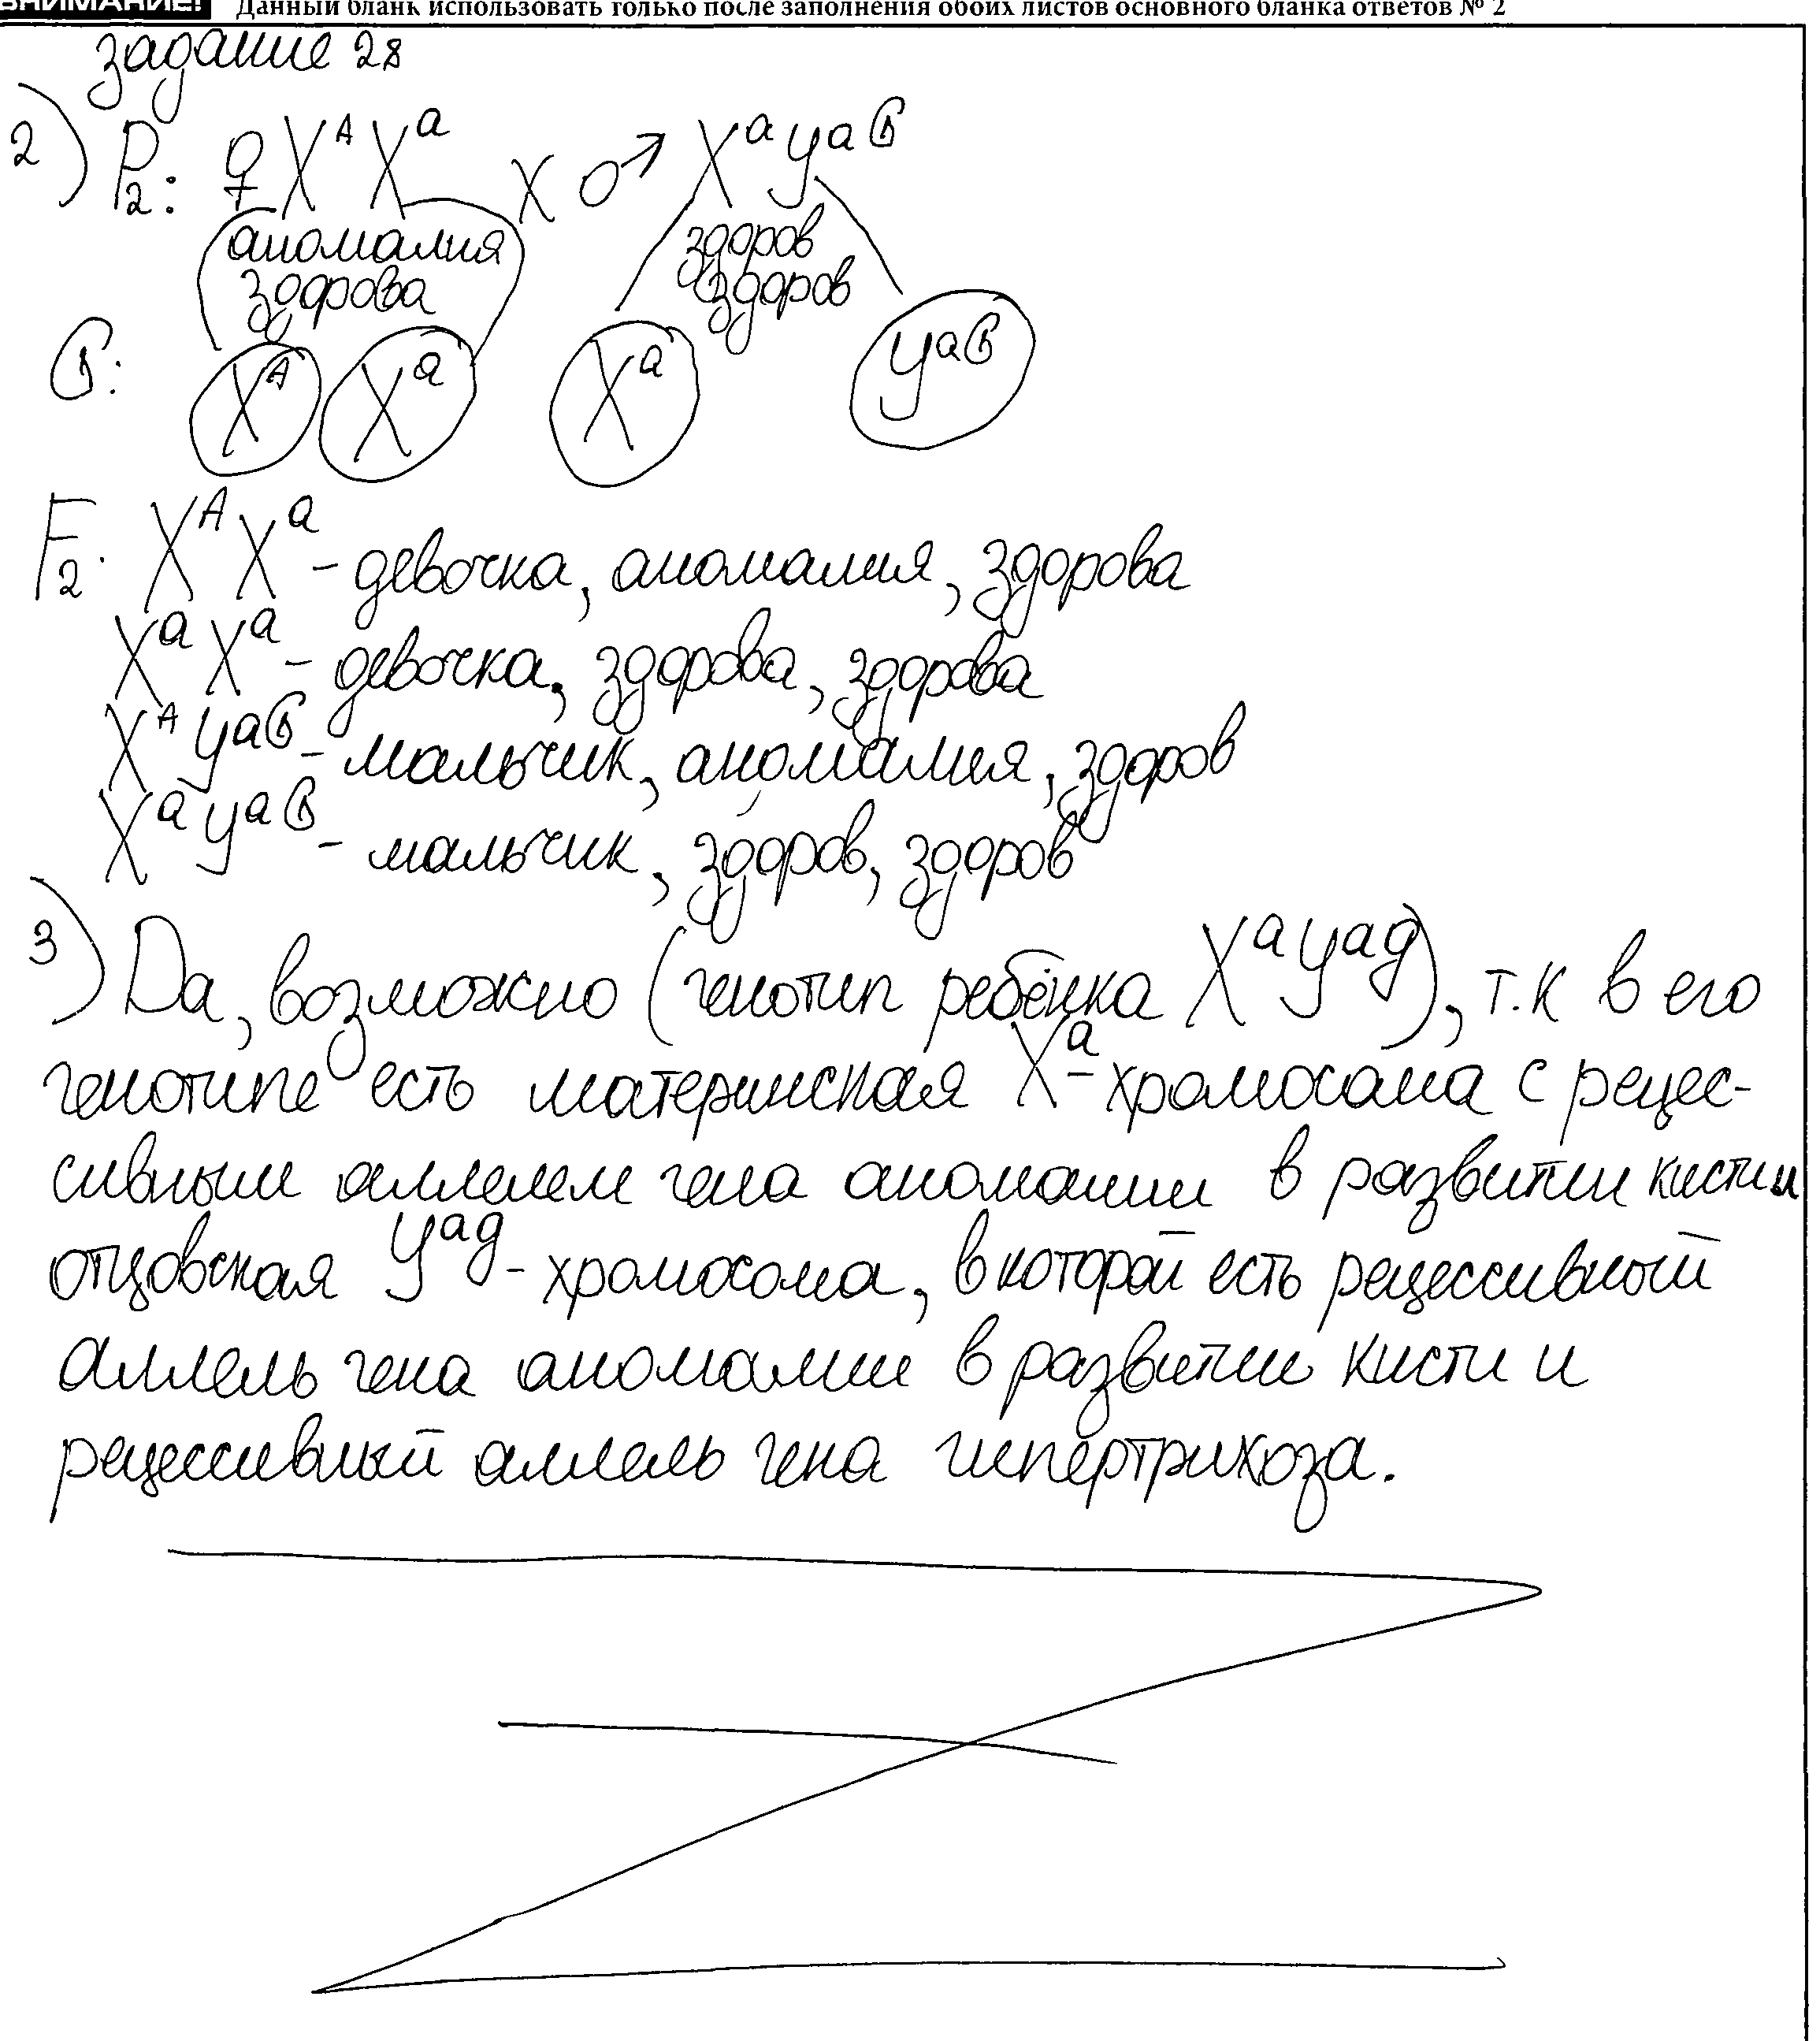 ВНИМАНИЕ! Данный бланк использовать только после заполнения обоих листов основного бланка ответов № 2
задание 28
2) P₂: ♀ Xᴬ Xᵃ × ♂ XᵃYᵃᴳ
аномалия здоров
здрова здоров
G: Xᴬ Xᵃ Xᵃ Yᵃᴳ
F₂: XᴬXᵃ - девочка, аномалия, здорова
XᵃXᵃ - девочка, здорова, здорова
XᴬYᵃᴳ - мальчик, аномалия, здоров
XᵃYᵃᴳ - мальчик, здоров, здоров
3) Да, возможно (генотип ребёнка XᵃYᵃᵍ), т.к в его
генотипе есть материнская Xᵃ-хромосома с рецес-
сивным аллелем гена аномалии в развитии кисти и
отцовская Yᵃᵍ-хромосома, в которой есть рецессивный
аллель гена аномалии в развитии кисти и
рецессивный аллель гена гипертрихоза.